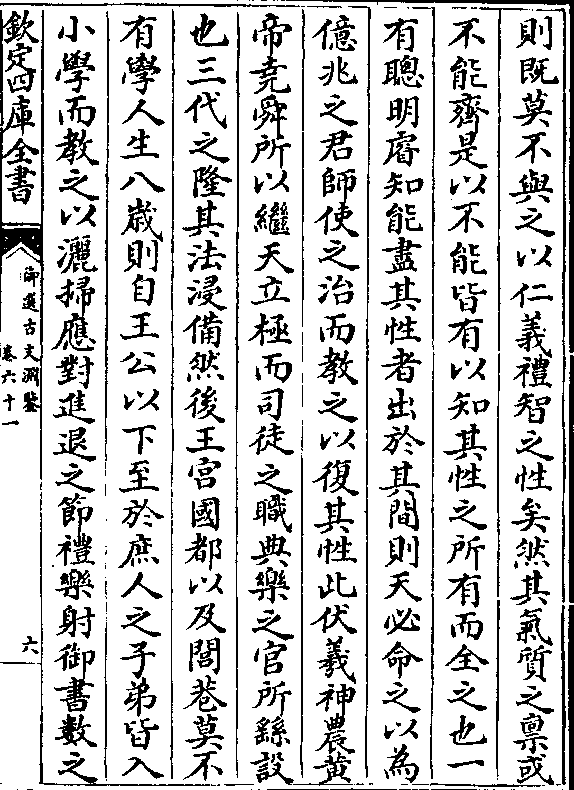 則既莫不與之以仁義禮智之性矣然其氣質之稟或
不能齊是以不能皆有以知其性之所有而全之也一
有聰明睿知能盡其性者出於其間則天必命之以為
億兆之君師使之治而教之以復其性此伏羲神農黃
帝堯舜所以繼天立極而司徒之職典樂之官所繇設
也三代之隆其法浸備然後王宮國都以及閭巷莫不
有學人生八歲則自王公以下至於庶人之子弟皆入
小學而教之以灑掃應對進退之節禮樂射御書數之
欽定四庫全書
御選古文淵鑒
卷六十一
六